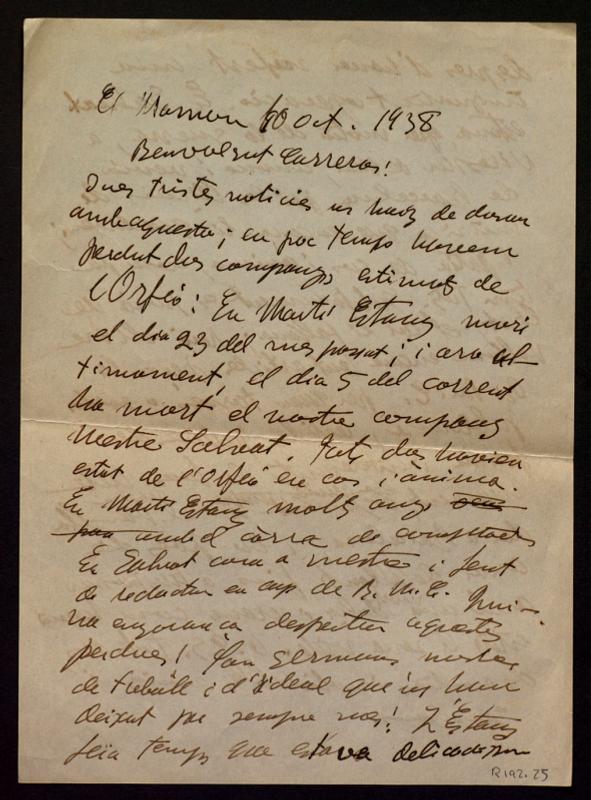 El Masnou 10 oct. 1938
Benvolgut Carreras!
Dues tristes noticies us haig de donar
amb aquesta; en poc temps havem
perdut dos companys estimats de
l'Orfeó: En Martí Estany morí
el dia 23 del mes passat; i ara ul-
timament, el dia 5 del corrent
ha mort el nostre company
Mestre Salvat. Tots dos havien
estat de l'Orfeó en cos i ànima.
En Martí Estany molts anys
amb el càrrec de comptador
En Salvat com a mestre i fent
de redactor en cap de R. M. C. Qui-
na enyorança desperten aquestes
perdues! Son germans nostres
de treball i d'ideal que ens han
deixat per sempre mes! L'Estany
feia temps que estava delicadíssim
R192.25